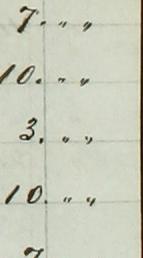 7. " "
10. " "
3. " "
10. " "
7